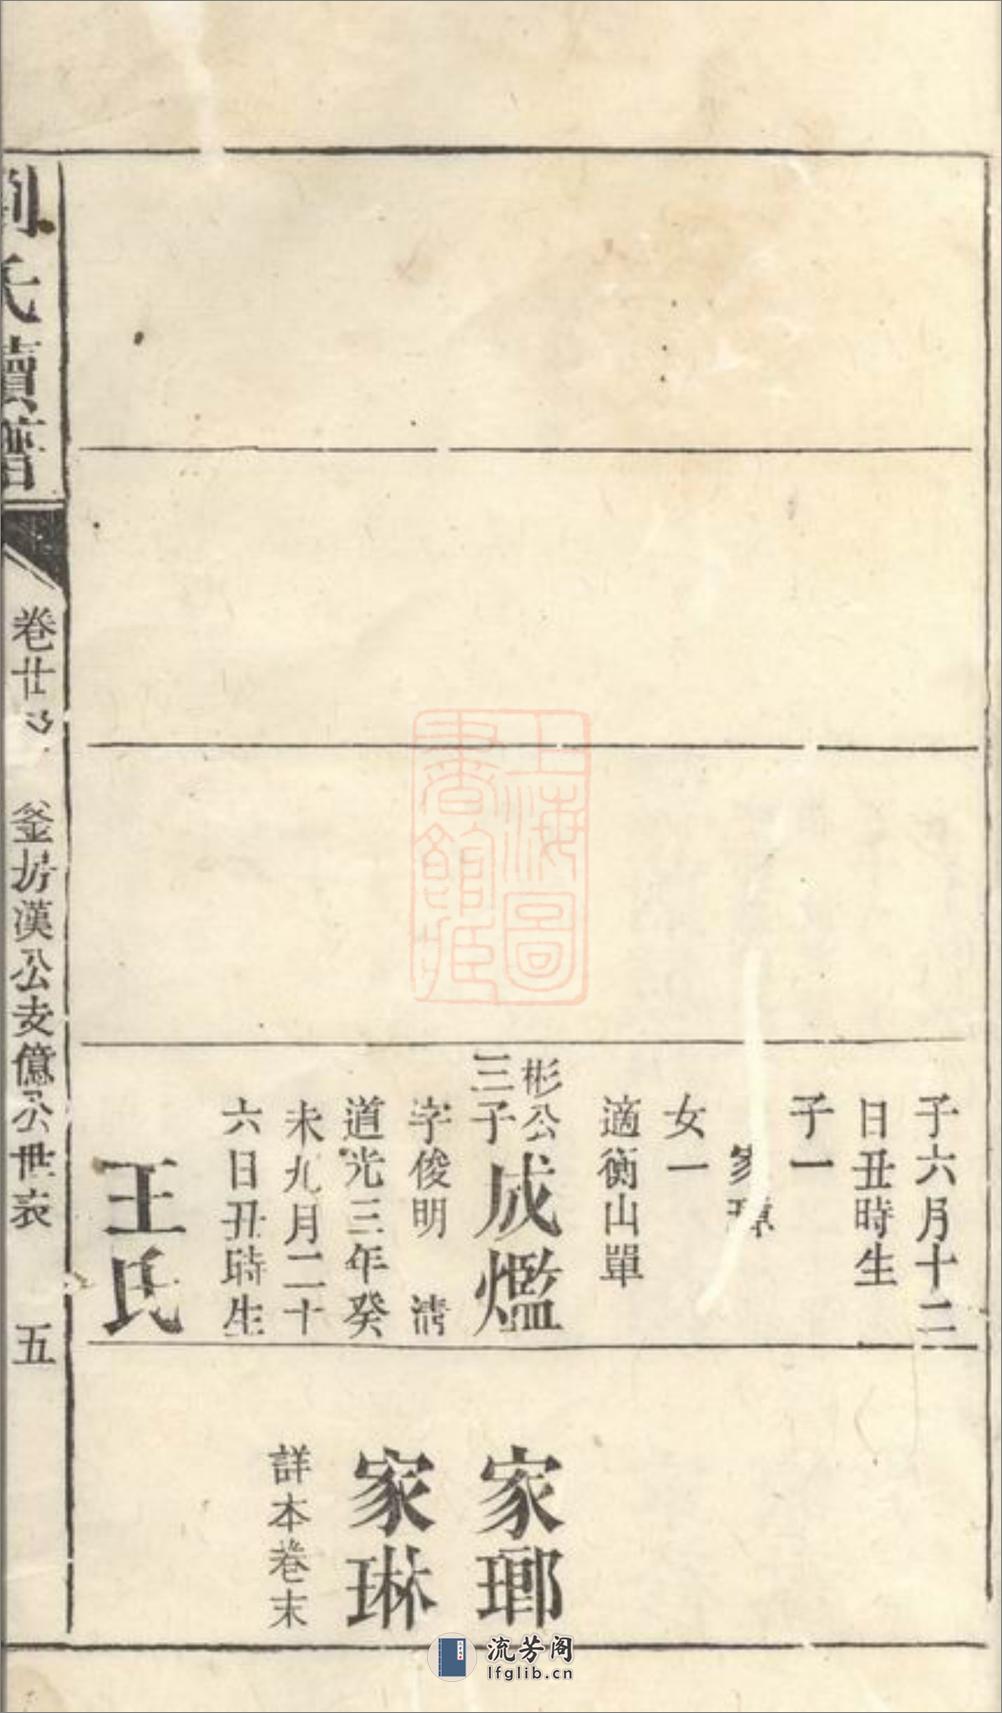 子六月十二
日丑時生
子一
家璋
女一
適衡山單
彬公
三子
成爁
字俊明 清
道光三年癸
未九月二十
六日丑時生
王氏
家瑯
家琳
詳本卷末
劉氏續譜
卷廿
釜坊漢公支億公世表
五
上海圖
書館藏
流芳阁
lfglib.cn